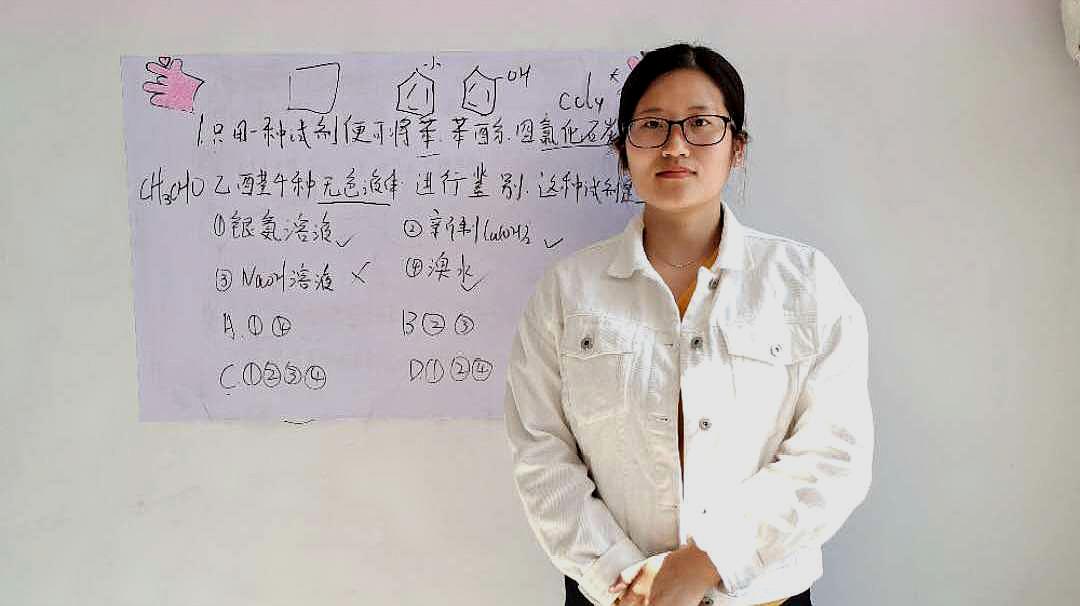 小 OH CCl4
1.只用一种试剂便可将苯、苯酚、四氯化碳
CH3CHO 乙醛4种无色液体进行鉴别.这种试剂是
①银氨溶液✓ ②新制Cu(OH)2✓
③NaOH溶液× ④溴水✓
A.①④ B②③
C①②③④ D①②④